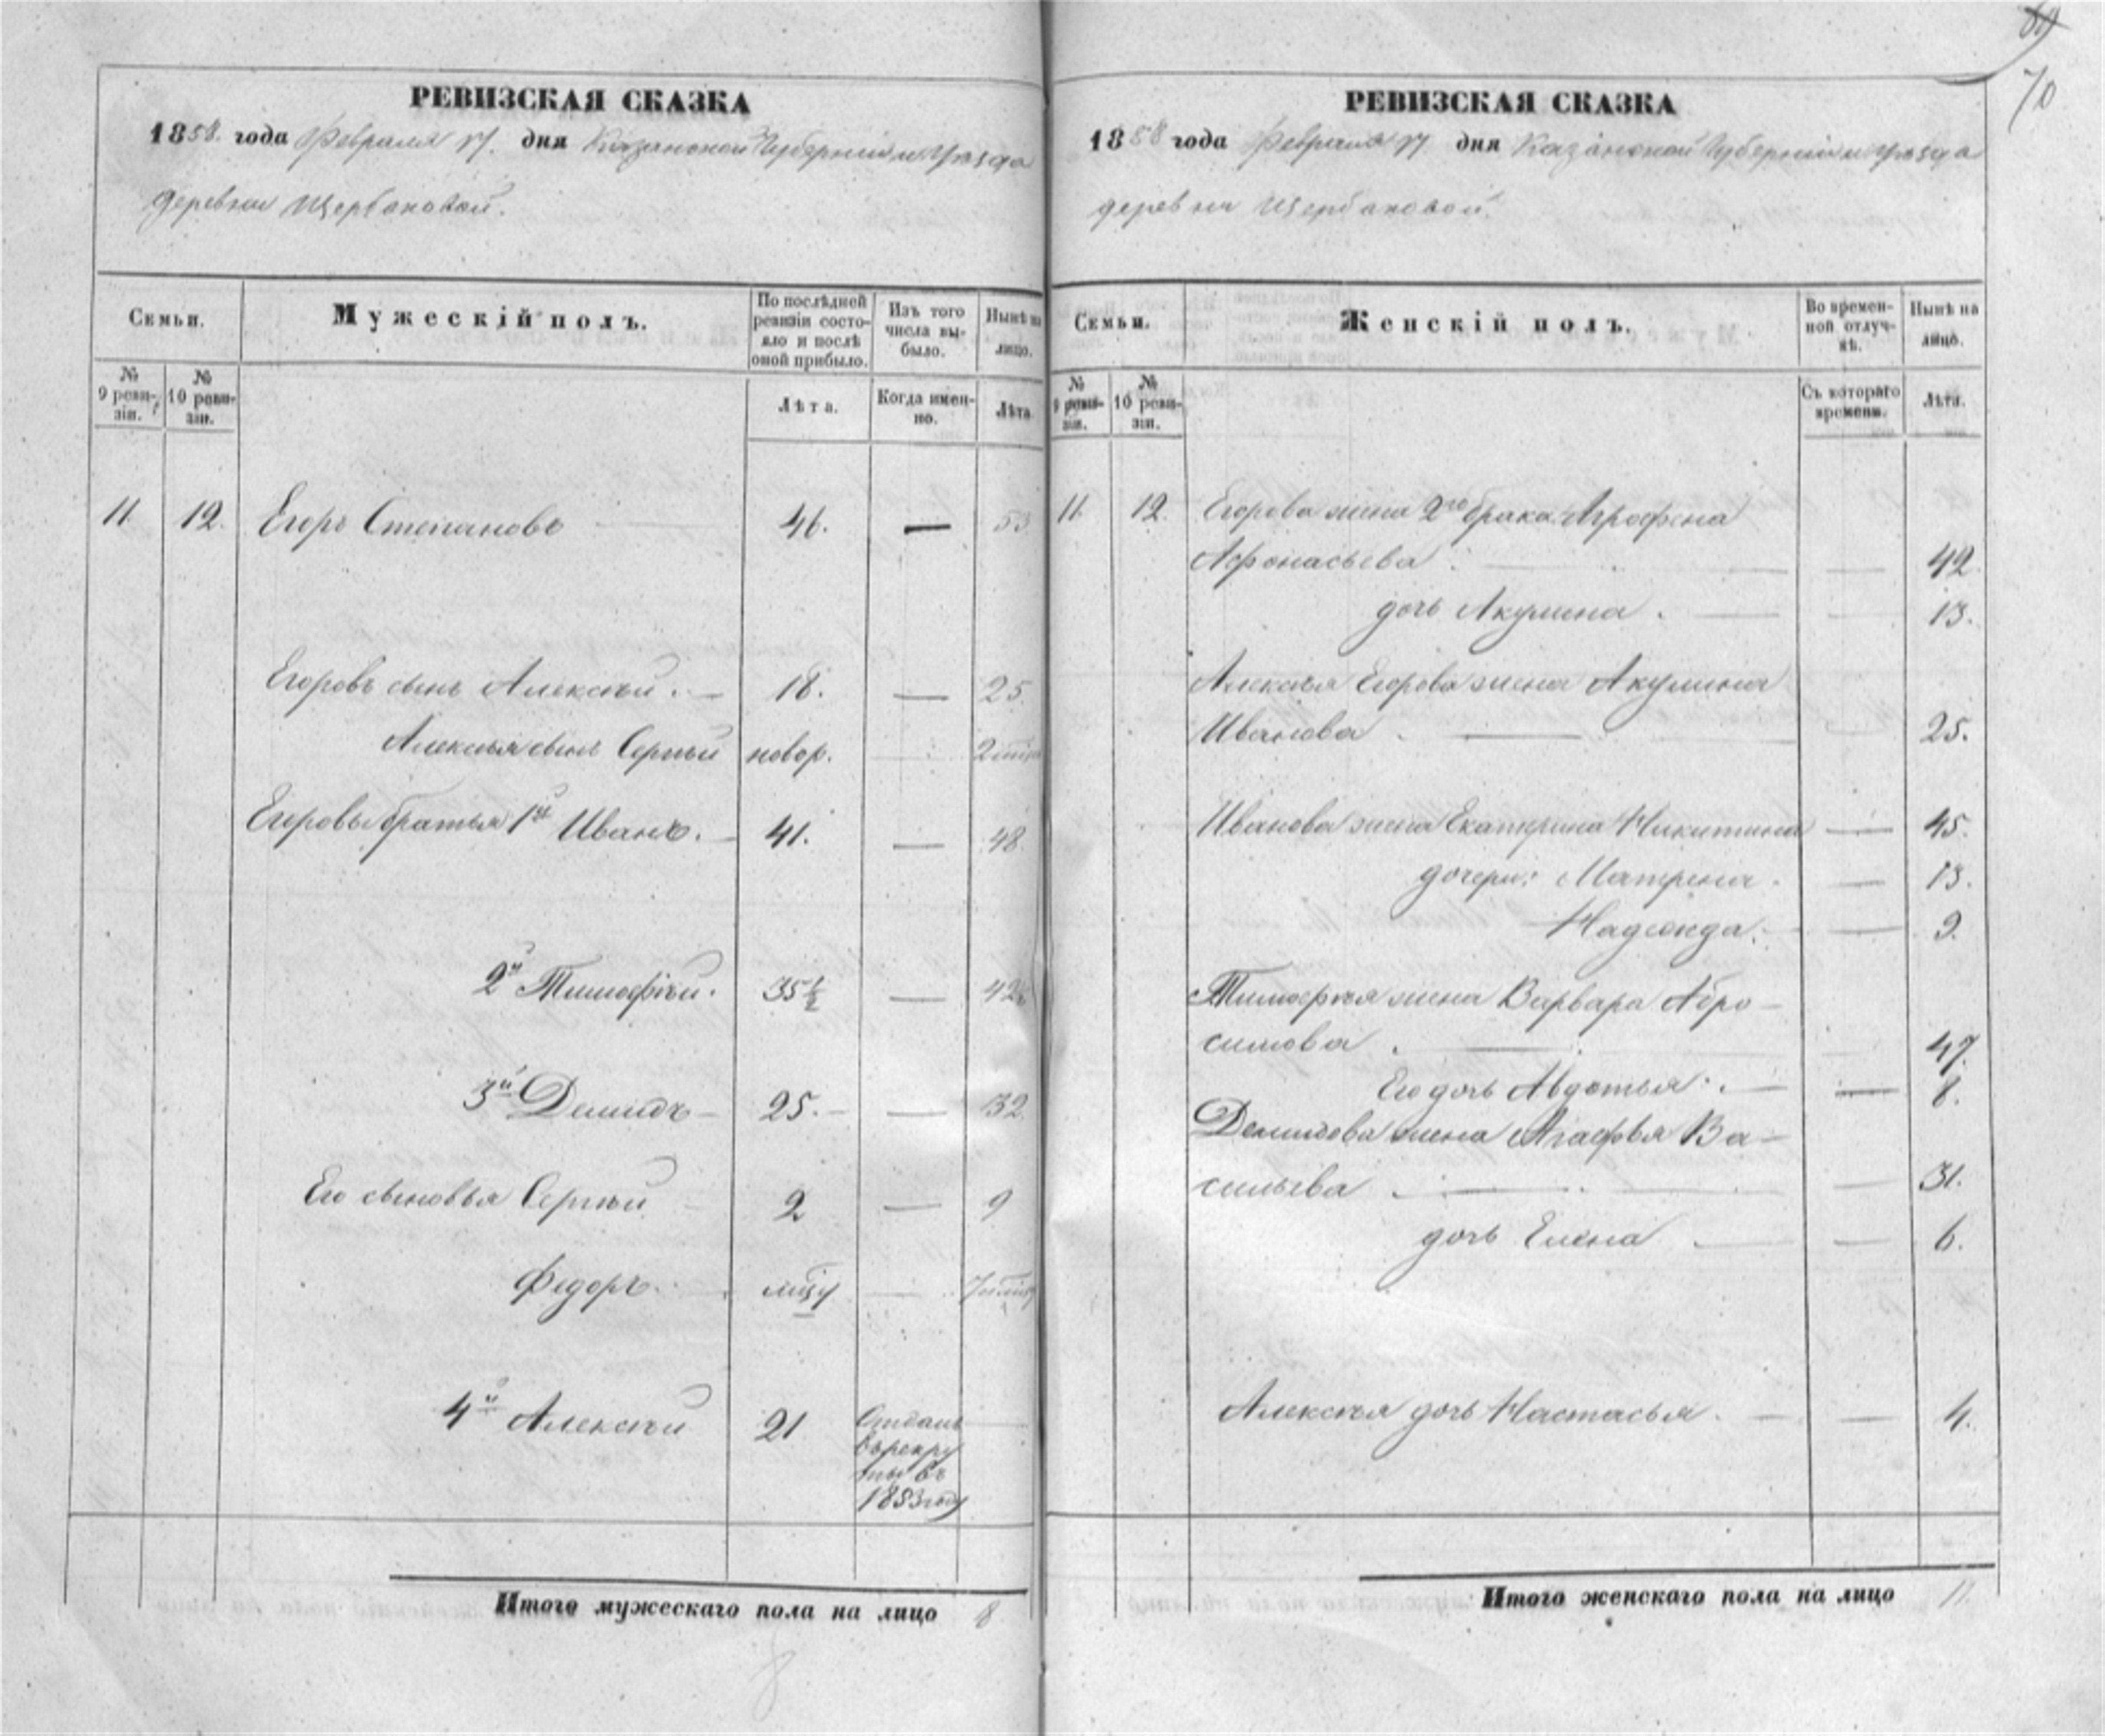 69
70
РЕВИЗСКАЯ СКАЗКА
1858. года Февраля 17. дня Казанской Губерніи и Уѣзда
деревни Щербаковой.
Семьи.
Мужескій полъ.
По послѣдней ревизіи состояло и послѣ оной прибыло.
Изъ того числа выбыло.
Нынѣ на лицо.
№ 9 ревизіи.
№ 10 ревизіи.
Лѣта.
Когда именно.
Лѣта
11. 12. Егоръ Степановъ 46. — 53
Егоровъ сынъ Алексѣй. — 18. — 25.
Алексѣя сынъ Сергѣй новор. 2
Егоровы братья 1й Иванъ. — 41. — 48.
2й Тимофѣй. 35½ — 42½
3й Демидъ — 25. — — 32.
Его сыновья Сергѣй 2 — 9
Федоръ. мцу 7
4й Алексѣй 21 Отданъ
въ рекру
ты въ
1853 году
Итого мужескаго пола на лицо 8.
8
РЕВИЗСКАЯ СКАЗКА
1858 года Февраля 17 дня Казанской Губерніи и Уѣзда
деревни Щербаковой.
Семьи.
Женскій полъ.
Во временной отлучкѣ.
Нынѣ на лицо.
№ 9 ревизіи.
№ 10 ревизіи.
Съ котораго времени.
Лѣта.
11. 12. Егорова жена 2го брака Агрофена
Афонасьева. — — 42
дочь Акулина. — — 13.
Алексѣя Егорова жена Акулина
Иванова. — — 25.
Иванова жена Екатерина Никитина — 45.
дочери: Матрена. — 13.
Надежда. — — 9.
Тимофѣя жена Варвара Абро-
симова. — 47.
Его дочь Авдотья. — — 8.
Демидова жена Агафья Ва-
сильева. — — 31.
дочь Елена — — 6.
Алексѣя дочь Настасья. — — 4.
Итого женскаго пола на лицо 11.